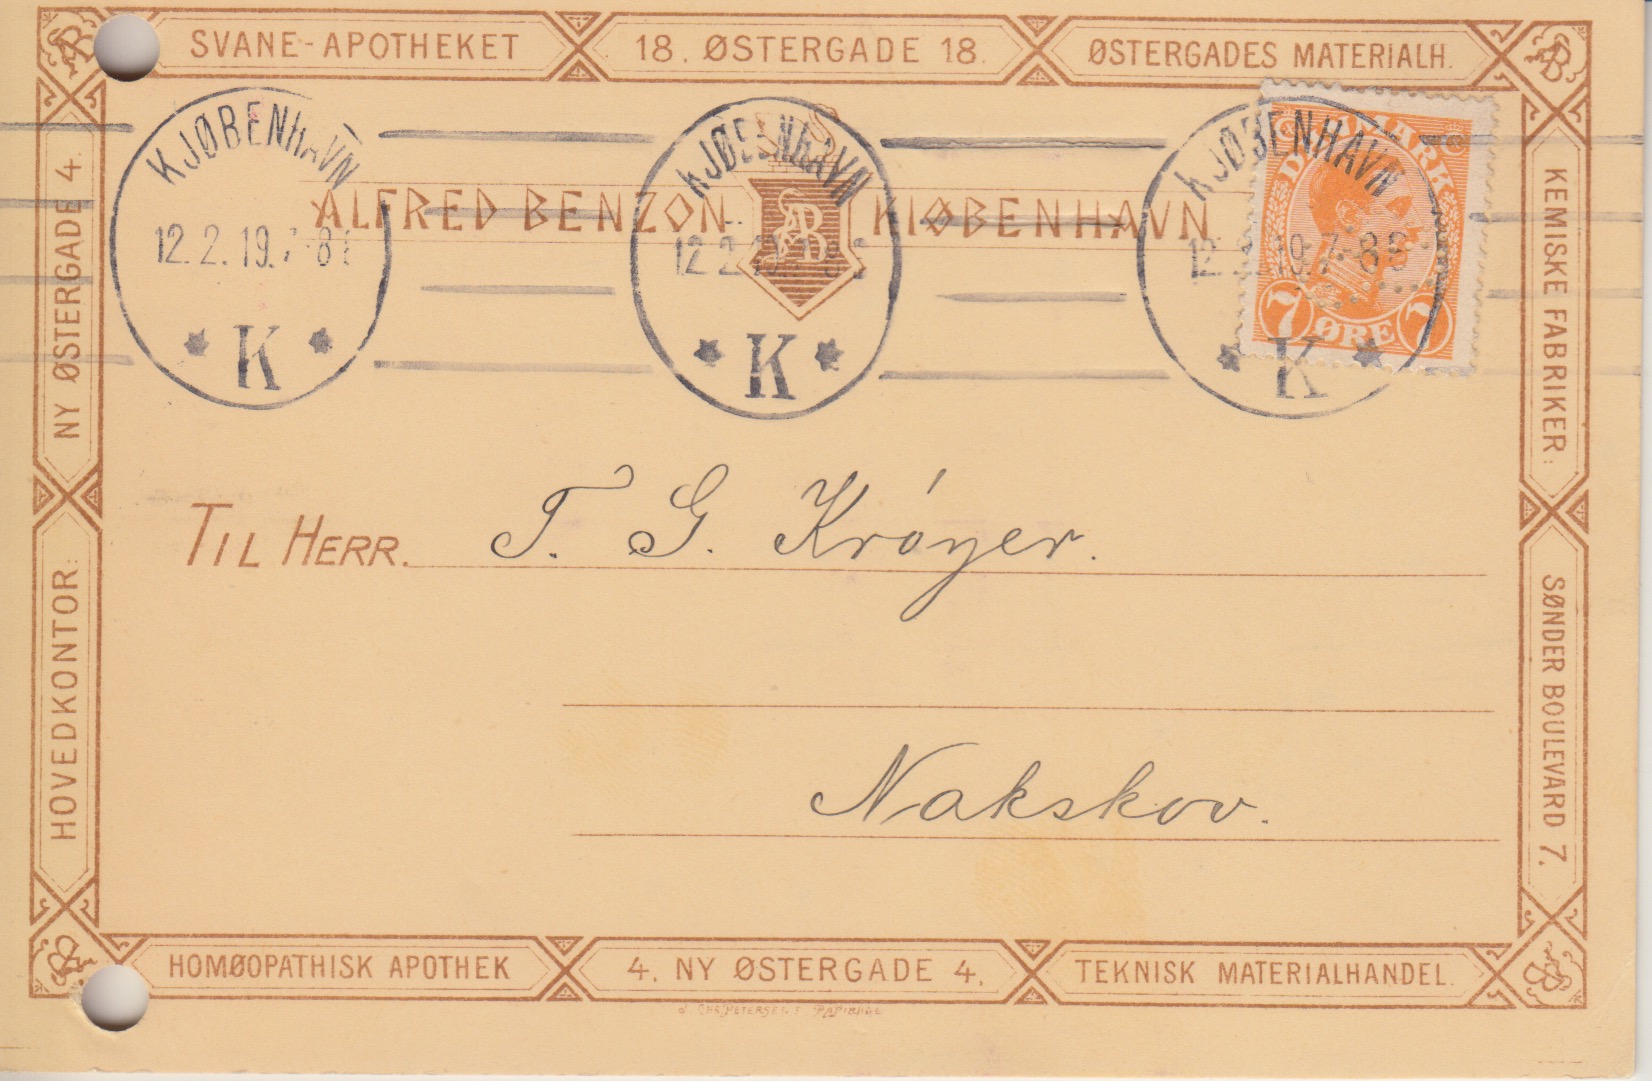 SVANE-APOTHEKET
18. ØSTERGADE 18.
ØSTERGADES MATERIALH.
NY ØSTERGADE 4.
HOVEDKONTOR:
KEMISKE FABRIKER:
SØNDER BOULEVARD 7.
KJØBENHAVN
12.2.19.
K
KJØBENHAVN
K
KJØBENHAVN
K
DANMARK
7 ØRE 7
ALFRED BENZON KIØBENHAVN
AB
TIL HERR. T. G. Króyer.
Nakskov.
HOMØOPATHISK APOTHEK
4. NY ØSTERGADE 4.
TEKNISK MATERIALHANDEL.